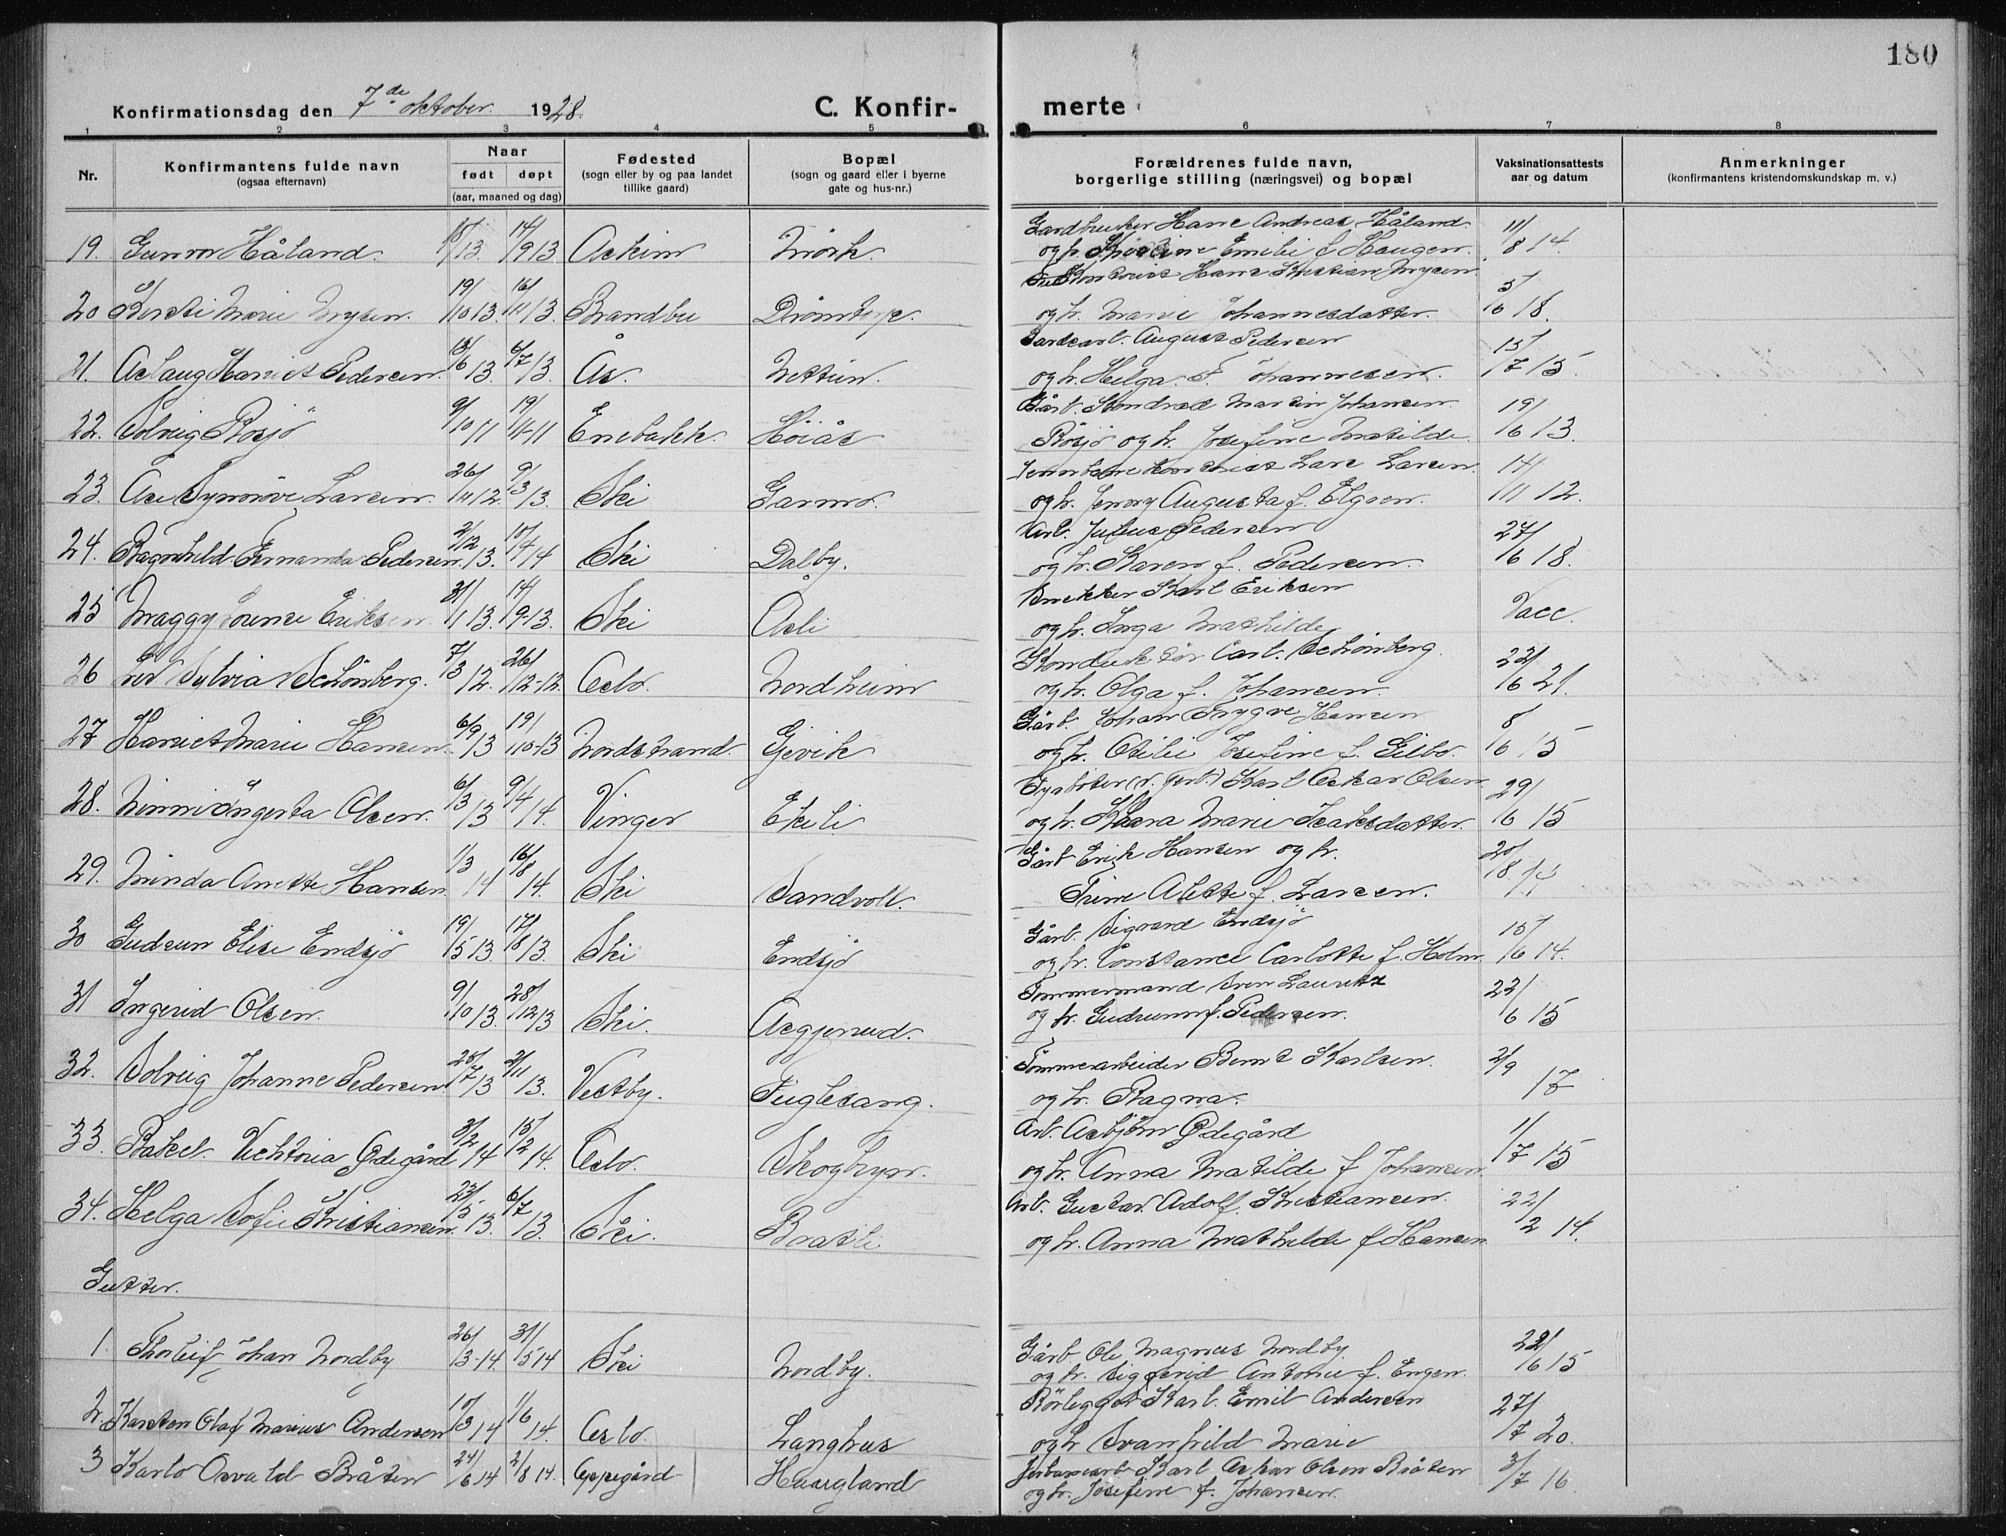 180
Konfirmationsdag den 7de oktober 1928. C. Konfir-
merte
1 2 3 4 5
6 7 8
Nr. Konfirmantens fulde navn (ogsaa efternavn) Naar født døpt (aar, maaned og dag) Fødested (sogn eller by og paa landet tillike gaard) Bopæl (sogn og gaard eller i byerne gate og hus-nr.)
Forældrenes fulde navn, borgerlige stilling (næringsvei) og bopæl Vaksinationsattests aar og datum Anmerkninger (konfirmantens kristendomskundskap m. v.)
19. Gunvor Håland. 14/9 13 Askim Mörk.
Hans Andreas Håland
og h. Emelie f. Haugen. 11/8 14.
20 Kirsti Marie Mysen. 19/10 13. 16/11 13. Brandbu Drömtorp.
Hans Kristian Mysen
og h. Marie Johannesdatter. 5/6 18.
21. Aslaug Harriet Pedersen. 13/6 13. 6/7 13. Ås.
August Pedersen
og h. Helga. F. Johannesen. 15/7 15.
22. Solveig Rosjö 9/10 11 19/11-11 Enebakk. Höiås
Gårb. Kondrad Martin Johansen
Rösjö og h. Josefine Matilde 19/6 13.
23. Ase Synnöve Larsen. 26/11 12. 9/3 13. Ski Garmo.
Lars Larsen
og h. Jenny Augusta f. Elgsen. 14/11 12.
24. Ragnhild Fernanda Pedersen. 2/12 13. 10/4 14 Ski Dalby.
Arb. Julius Pedersen
og h. Karen f. Pedersen. 27/6 18.
25 Maggy Lovise Eriksen. 31/1 13. 14/9-13. Ski Åsli
Snekker Karl Eriksen
og h. Inga Mathilde Vacc.
26 Liv Sylvia Schönberg. 7/3 12. 26/12-12. Oslo. Nordheim
Konduktör Carl. Schönberg
og h. Olga f. Johansen. 22/6 21.
27 Harriet Marie Hansen. 6/9 13 19/10-13 Nordstrand. Gjevik
Gårb. Johan Trygve Hansen
og h. Otilie Josefine f. Gilbo. 8/6 15
28. Ninni Ingerta Olsen. 6/3 13 9/4 14. Vinger Ekeli
Karl Oskar Olsen
og h. Klara Marie Isaksdatter. 29/6 15
29. Minda Anette Hansen 1/3 14 16/8 14. Ski Sandvoll.
Gårb Erik Hansen og h.
Trine Alette f. Larsen. 20/8
30 Gudrun Elise Endsjö 19/5 13. 17/8 13. Ski Endsjö
Gårb. Sigvard Endsjö
og h. Constance Carlotte f. Holm. 15/6 14.
31 Ingerid Olsen. 9/10 13. 28/12 13 Ski. Asgjerrud.
Tömmermand Sven Lauritz
og h. Gudrun f. Pedersen. 22/6 15
32. Solveig Johanne Pedersen 25/7 13 2/11 13. Vestby. Fuglesang.
Tömmerarbeider Bernt Karlsen.
og h. Ragna. 2/9 17
33. Rakel Vicktoria Ödegård 3/2 14 15/2 14. Oslo. Skogbryn.
Arb. Asbjörn Ödegård
og h. Anna Matilde f Johansen 1/7 15
34. Helga Sofie Kristiansen. 23/5 13. 6/7 13. Ski. Bratli
Arb. Gustav Adolf Kristiansen.
og h. Anna Mathilde f Hansen 22/2 14.
Gutter.
1. Thorleif Johan Nordby 26/3-14. 31/5 14 Ski Nordby.
Gårb. Ole Magnus Nordby
og h. Sigfrid Antonie f. Engen. 22/6 15
2. Karsten Olaf Marius Andersen 10/3 14 1/6 14. Oslo. Langhus
Rörlegger Karl. Emil Andersen
og h Svanhild Marie 27/7 20.
3 Karlo Osvald Bråten 24/6 14 2/8 14. Oppegård Haugland
Karl Oskar Olsen Bråten
og h. Josefine f. Johansen. 3/7 16